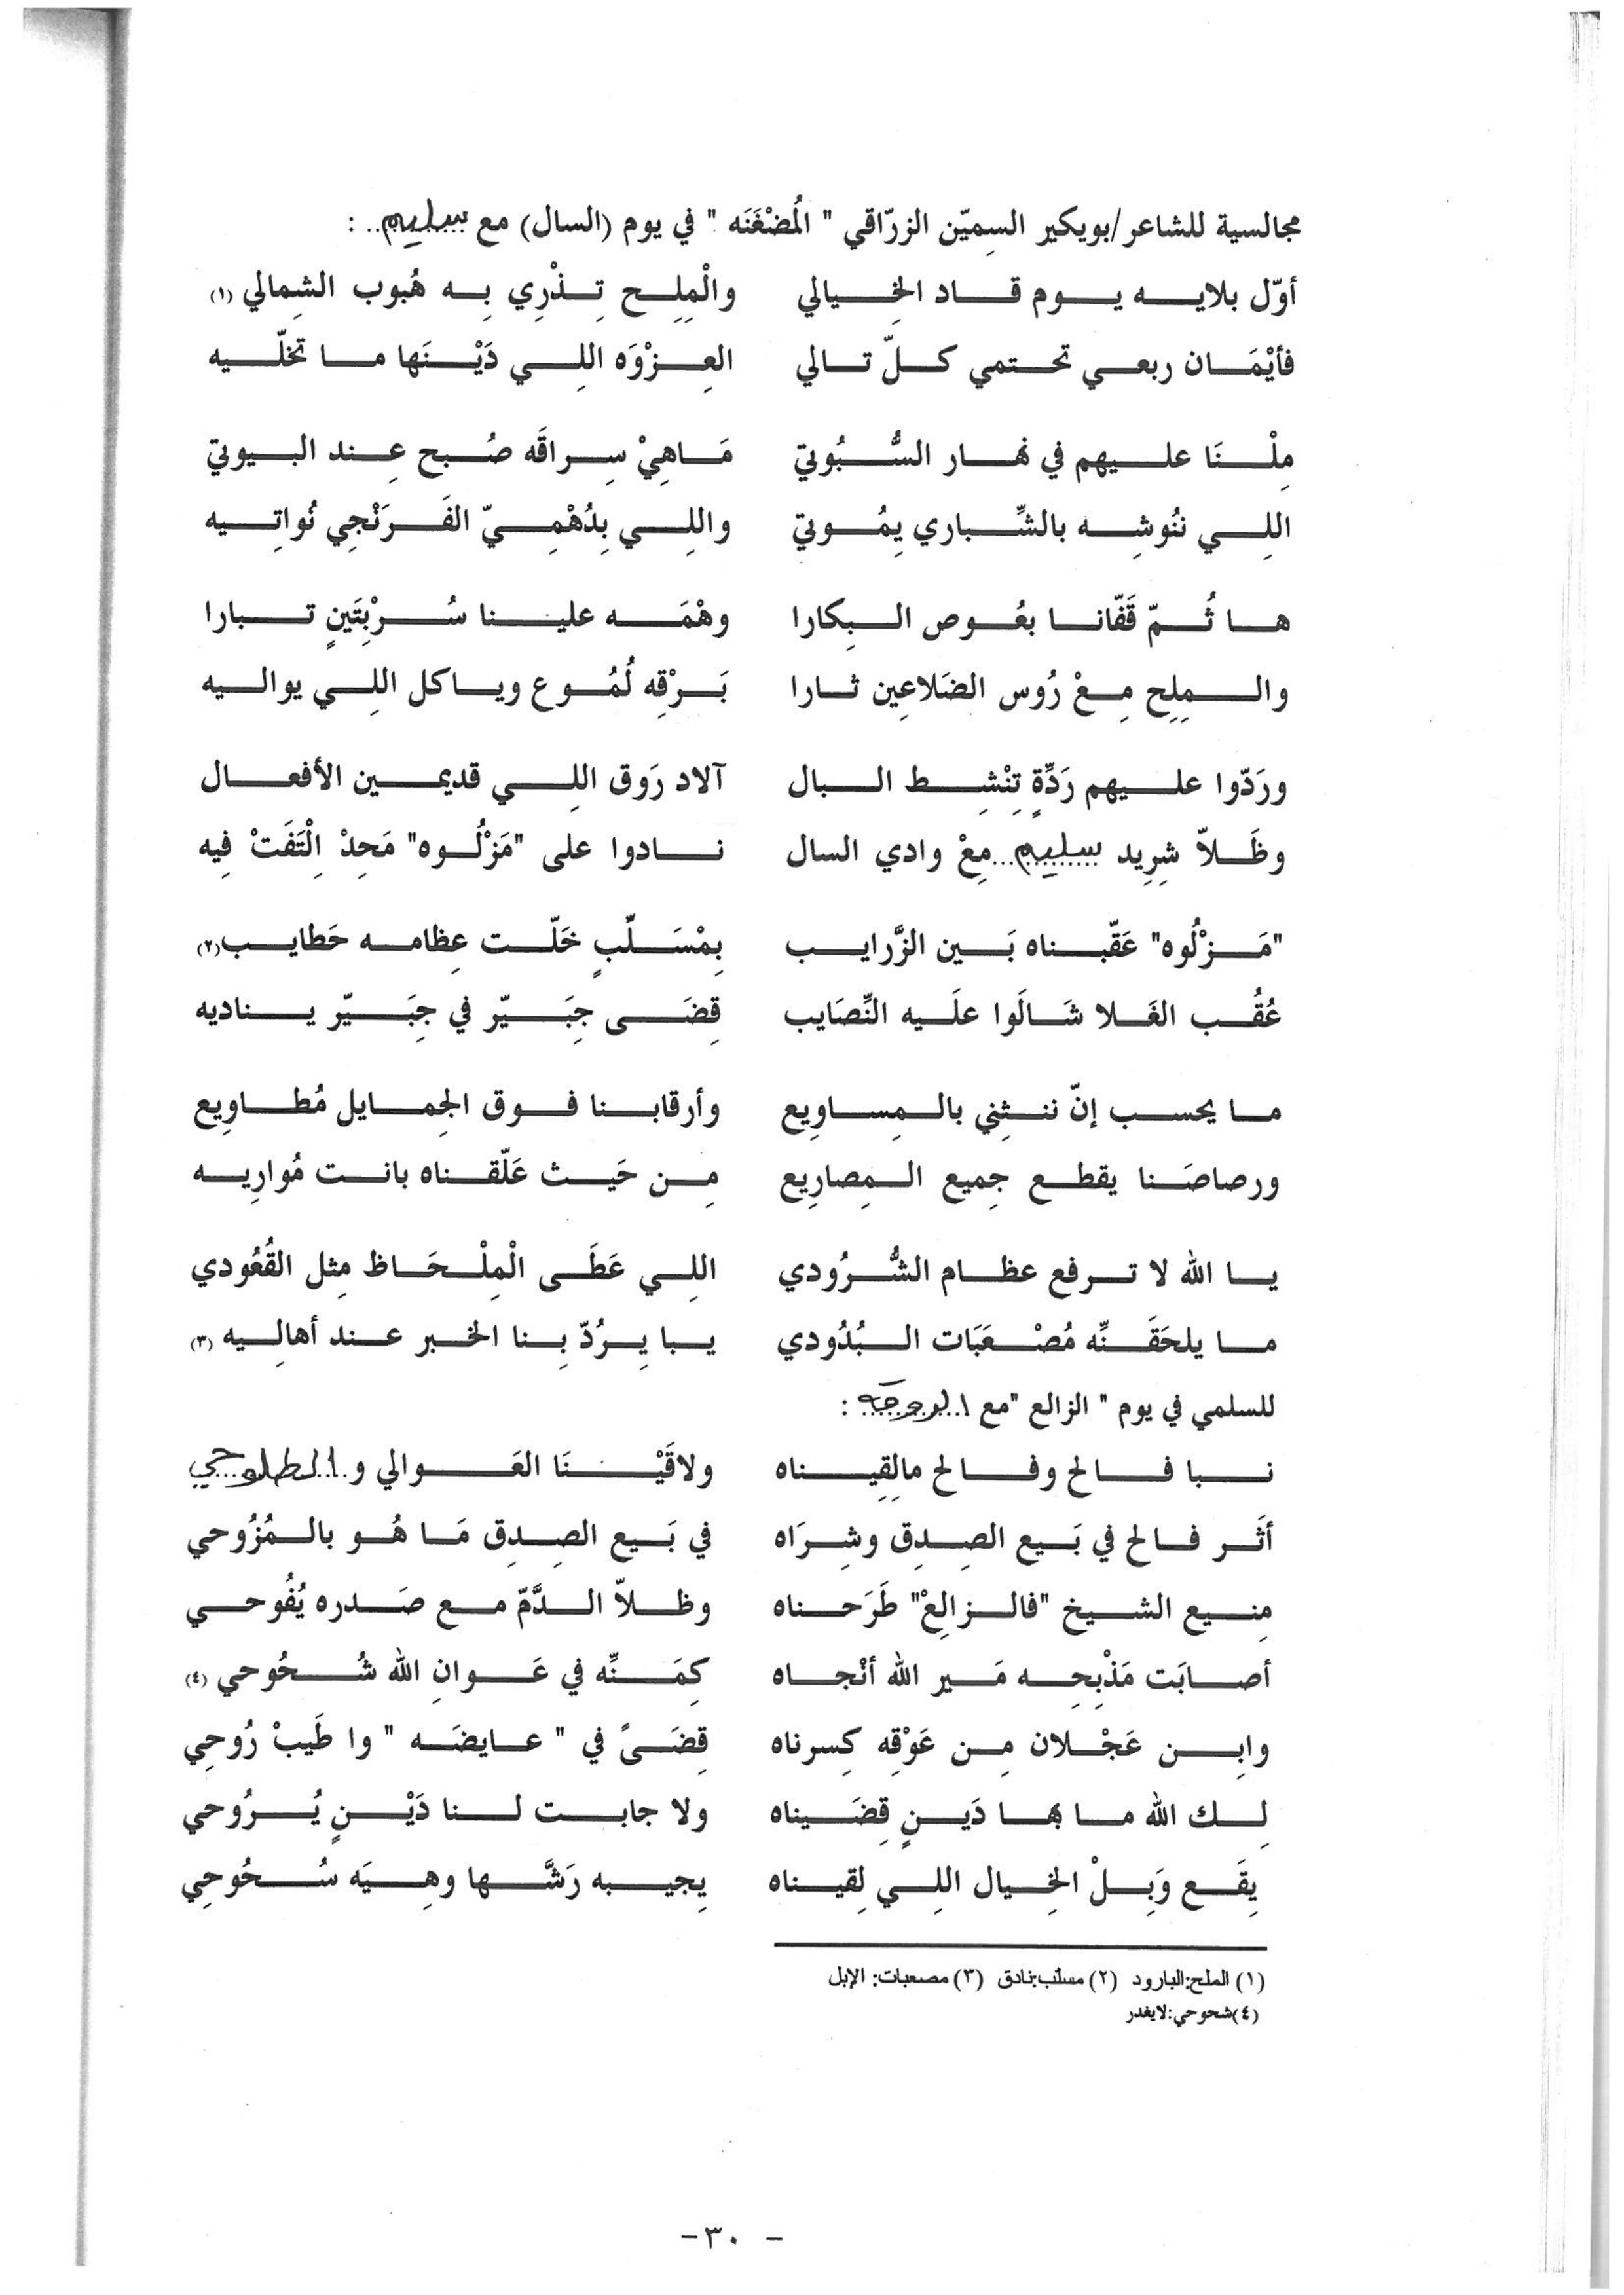 مجالسية للشاعر/بويكير السمِيّن الزرّاقي " الُمضْغَنَه " في يوم (السال) مع سليم.. :
أوّل بلايه يوم قاد الخِيالي والْمِلِح تِذْرِي بِه هُبوب الشِمالي (١)
فأيْمَان ربعي تحتمي كلّ تالي العِزْوَه اللِي دَيْنَها ما تخلّيه
مِلْنَا عليهم في نهار السُّبُوتي مَاهِيْ سِراقَه صُبح عِند البيوتي
اللِي ننُوشِه بالشِّباري يِمُوتي واللِي بِدُهْمِيّ الفَرَنْجِي نُواتِيه
ها ثُمّ قَفّانا بعُوص البِكارا وهْمَه علينا سُرْبِتَينٍ تبارا
والمِلِح مِعْ رُوس الضَلاعِين ثارا بَرْقِه لُمُوع وياكل اللِي يواليه
ورَدّوا عليهم رَدِّةٍ تِنْشِط البال آلاد رَوق اللِي قديمين الأفعال
وظَلاّ شِرِيد سليم...مِعْ وادي السال نادوا على "مَزْلُوه" مَحِدْ اِلْتَفَتْ فِيه
"مَزْلُوه" عَقّبناه بَين الزَّرايب بِمْسَلّبٍ خَلّت عِظامه حَطايب(٢)
عُقُب الغَلا شَالَوا علَيه النِّصَايب قِضَى جبَيّر في جبَيّر يناديه
ما يحسب إنّ ننثِني بالمِساوِيع وأرقابنا فوق الجِمايل مُطاوِيع
ورصاصَنا يقطع جِميع المِصارِيع مِن حَيث عَلّقناه بانت مُوارِيه
يا الله لا ترفع عظام الشُّرُودي اللِي عَطَى الْمِلْحَاظ مِثل القُعُودي
ما يلحَقَنِّه مُصْعَبَات البُدُودي يبا يِرُدّ بِنا الخبر عند أهالِيه (٣)
للسلمي في يوم " الزالع "مع الروقه :
نبا فالح وفالح مالِقِيناه ولاقَيْنَا العَوالي و...الطلوحي
أثَر فالح في بَيع الصِدِق وشِرَاه في بَيع الصِدِق مَا هُو بالمُزُوحي
مِنيع الشيخ "فالزالِعْ" طَرَحناه وظلاّ الدَّمّ مع صَدره يُفُوحي
أصابَت مَذْبِحِه مَير الله أنْجاه كِمَنِّه في عَوانِ الله شُحُوحي (٤)
وابِن عَجْلان مِن عَوْقِه كِسرناه قِضَىً في " عايضَه " وا طَيبْ رُوحِي
لِك الله ما بها دَينٍ قِضَيناه ولا جابت لنا دَيْنٍ يُرُوحي
يِقَع وَبِلْ الخِيال اللِي لِقيناه يِجيبه رَشَّها وهِيَه سُحُوحِي
(١) الملح:البارود (٢) مسلب:بنادق (٣) مصعبات: الإبل
(٤)شحوحي:لايغدر
- ٣٠-